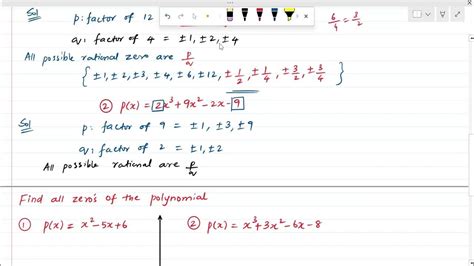 Sol p: factor of 12
6/4 = 3/2
q: factor of 4 = ±1, ±2, ±4
All possible rational zero are p/q
{ ±1, ±2, ±3, ±4, ±6, ±12, ±1/2, ±1/4, ±3/2, ±3/4 }
② P(x) = 2x³+9x²-2x-9
Sol p: factor of 9 = ±1, ±3, ±9
q: factor of 2 = ±1, ±2
All possible rational are p/q
Find all zero's of the polynomial
① P(x) = x²-5x+6 ② P(x) = x³+3x²-6x-8